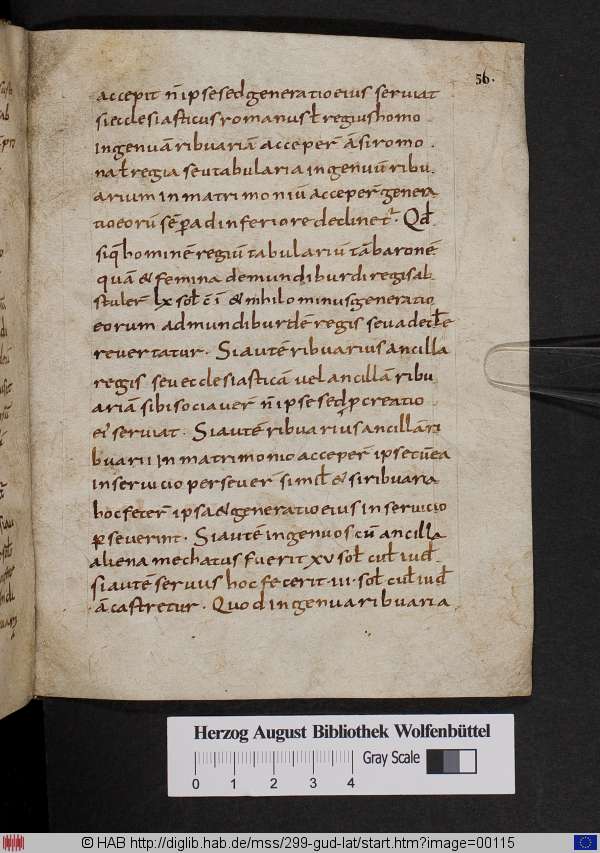 56.
accepit n̄ ipse sed generatio eius serviat
si ecclesiasticus romanus ł regius homo
ingenuā ribuariā acceper̄ aṡ i romo
na ł regia seu tabularia ingenuū ribu
arium in matrimoniū acceper̄ genera
tio eorū sēp ad inferiora declinet̄. Qđ
siq̄ hominē regiū tabulariū tā baronē
quā et femina de mundiburdi regis ab
stuler̄ lx sol̄ c̄ i et nihilominus generatio
eorum ad mundiburdē regis seu ad eccłe
revertatur. Si autē ribuarius ancilla
regis seu ecclesiasticā vel ancillā ribu
ariā sibi sociaver̄ n̄ ipse sed p̱creatio
ei' serviat. Si autē ribuarius ancillā ri
buarii in matrimonio acceper̄ ipse cū ea
in servicio persever̄ simił et si ribuaria
hoc fecer̄ ipsa et generatio eius in servicio
p̱severint. Si autē ingenuos cū ancilla
aliena mechatus fuerit xv sol̄ cul̄ iuđ
si autē servus hoc fecerit iii sol̄ cul̄ iuđ
ā castretur. Quod ingenua ribuaria
Herzog August Bibliothek Wolfenbüttel
Gray Scale
0 1 2 3 4
© HAB http://diglib.hab.de/mss/299-gud-lat/start.htm?image=00115